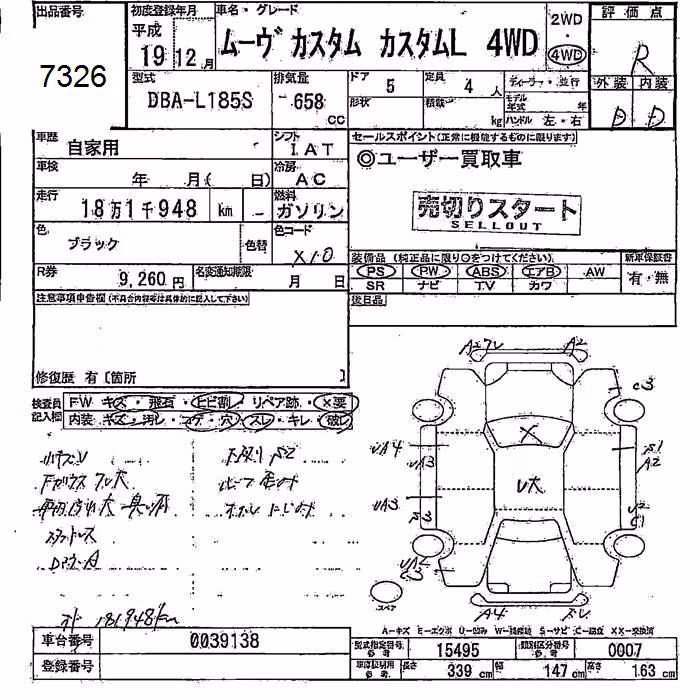 出品番号 初度登録年月 車名・グレード 2WD 評価点
7326 平成 19 12月 ムーヴ カスタム カスタムL 4WD 4WD R
型式 排気量 ドア 5 定員 4 人 ディーラー・並行 外装 内装
DBA-L185S 658 cc 形状 積載 kg モデル年式 年 D D
ハンドル 左・右
車歴 自家用 シフト IAT セールスポイント(正常に機能するものに限ります)
車検 年 月( 日) 冷房 AC ◎ユーザー買取車
走行 18万1千948 km 燃料 ガソリン 売切りスタート
SELLOUT
色 ブラック 色替 色コード X10
装備品 (純正品に限り○をつけてください) 新車保証書
R券 9,260円 名変通知期限 月 日 PS PW ABS エアB AW 有・無
SR ナビ TV カワ
注意事項申告欄(不具合内容等は具体的に記入して下さい) 後日品
修復歴 有〔箇所 〕
検査員記入欄 FW キズ・飛石・ヒビ割・リペア跡・×要
内装・キズ・汚レ・コゲ・穴・スレ・キレ・破レ
A2 C3
UA4 S1
UA3 A2
UA3 U2
C1
A4
スタットレス
181948km
スペア
A-キズ E-エクボ U-凹み W-補修跡 S-サビ C-腐食 XX-交換済
車台番号 0039138 型式指定番号 参考 15495 類別区分番号 参考 0007
登録番号 車庫証明用 参考 長さ 339 cm 幅 147 cm 高さ 163 cm